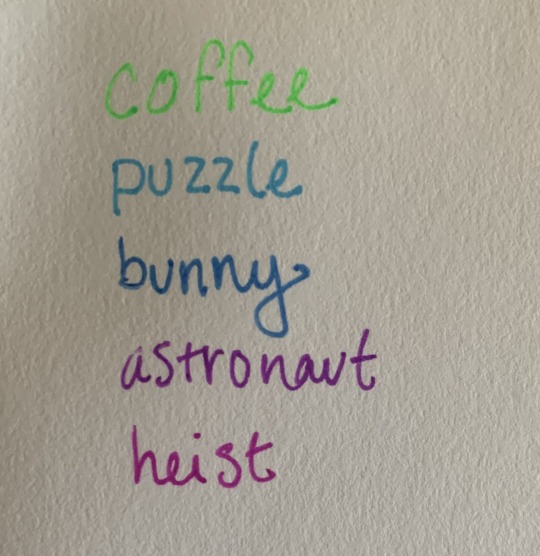 coffee
puzzle
bunny
astronaut
heist